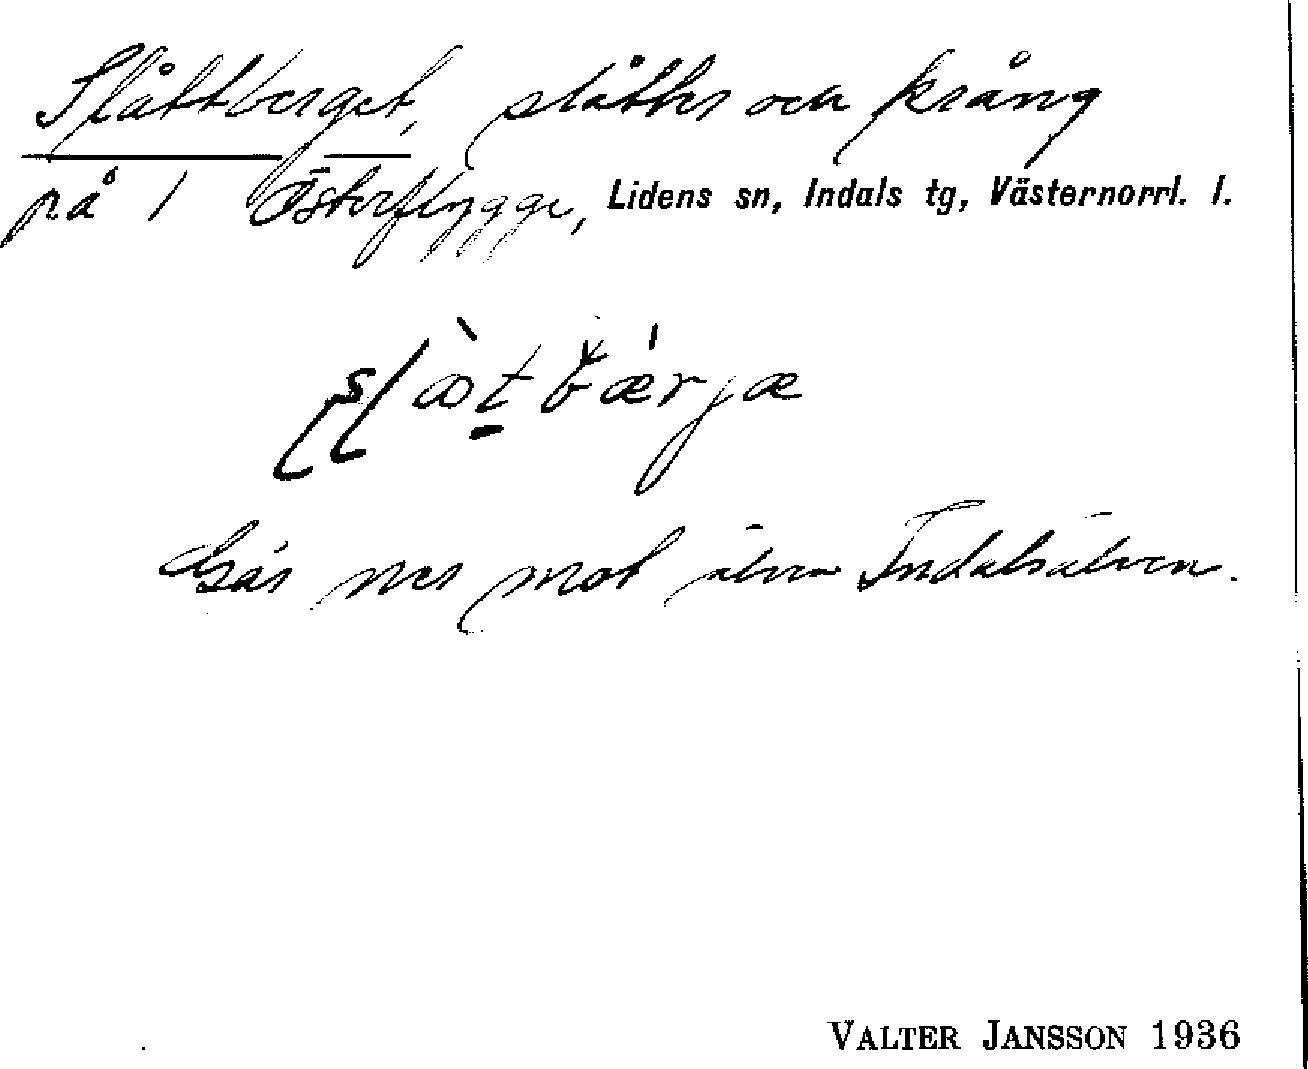 Slåttberget, slåtter och kräng
på 1 Österflygge, Lidens sn, Indals tg, Västernorrl. l.
slàtbærjæ
Går ner mot älven Indalsälven.
VALTER JANSSON 1936